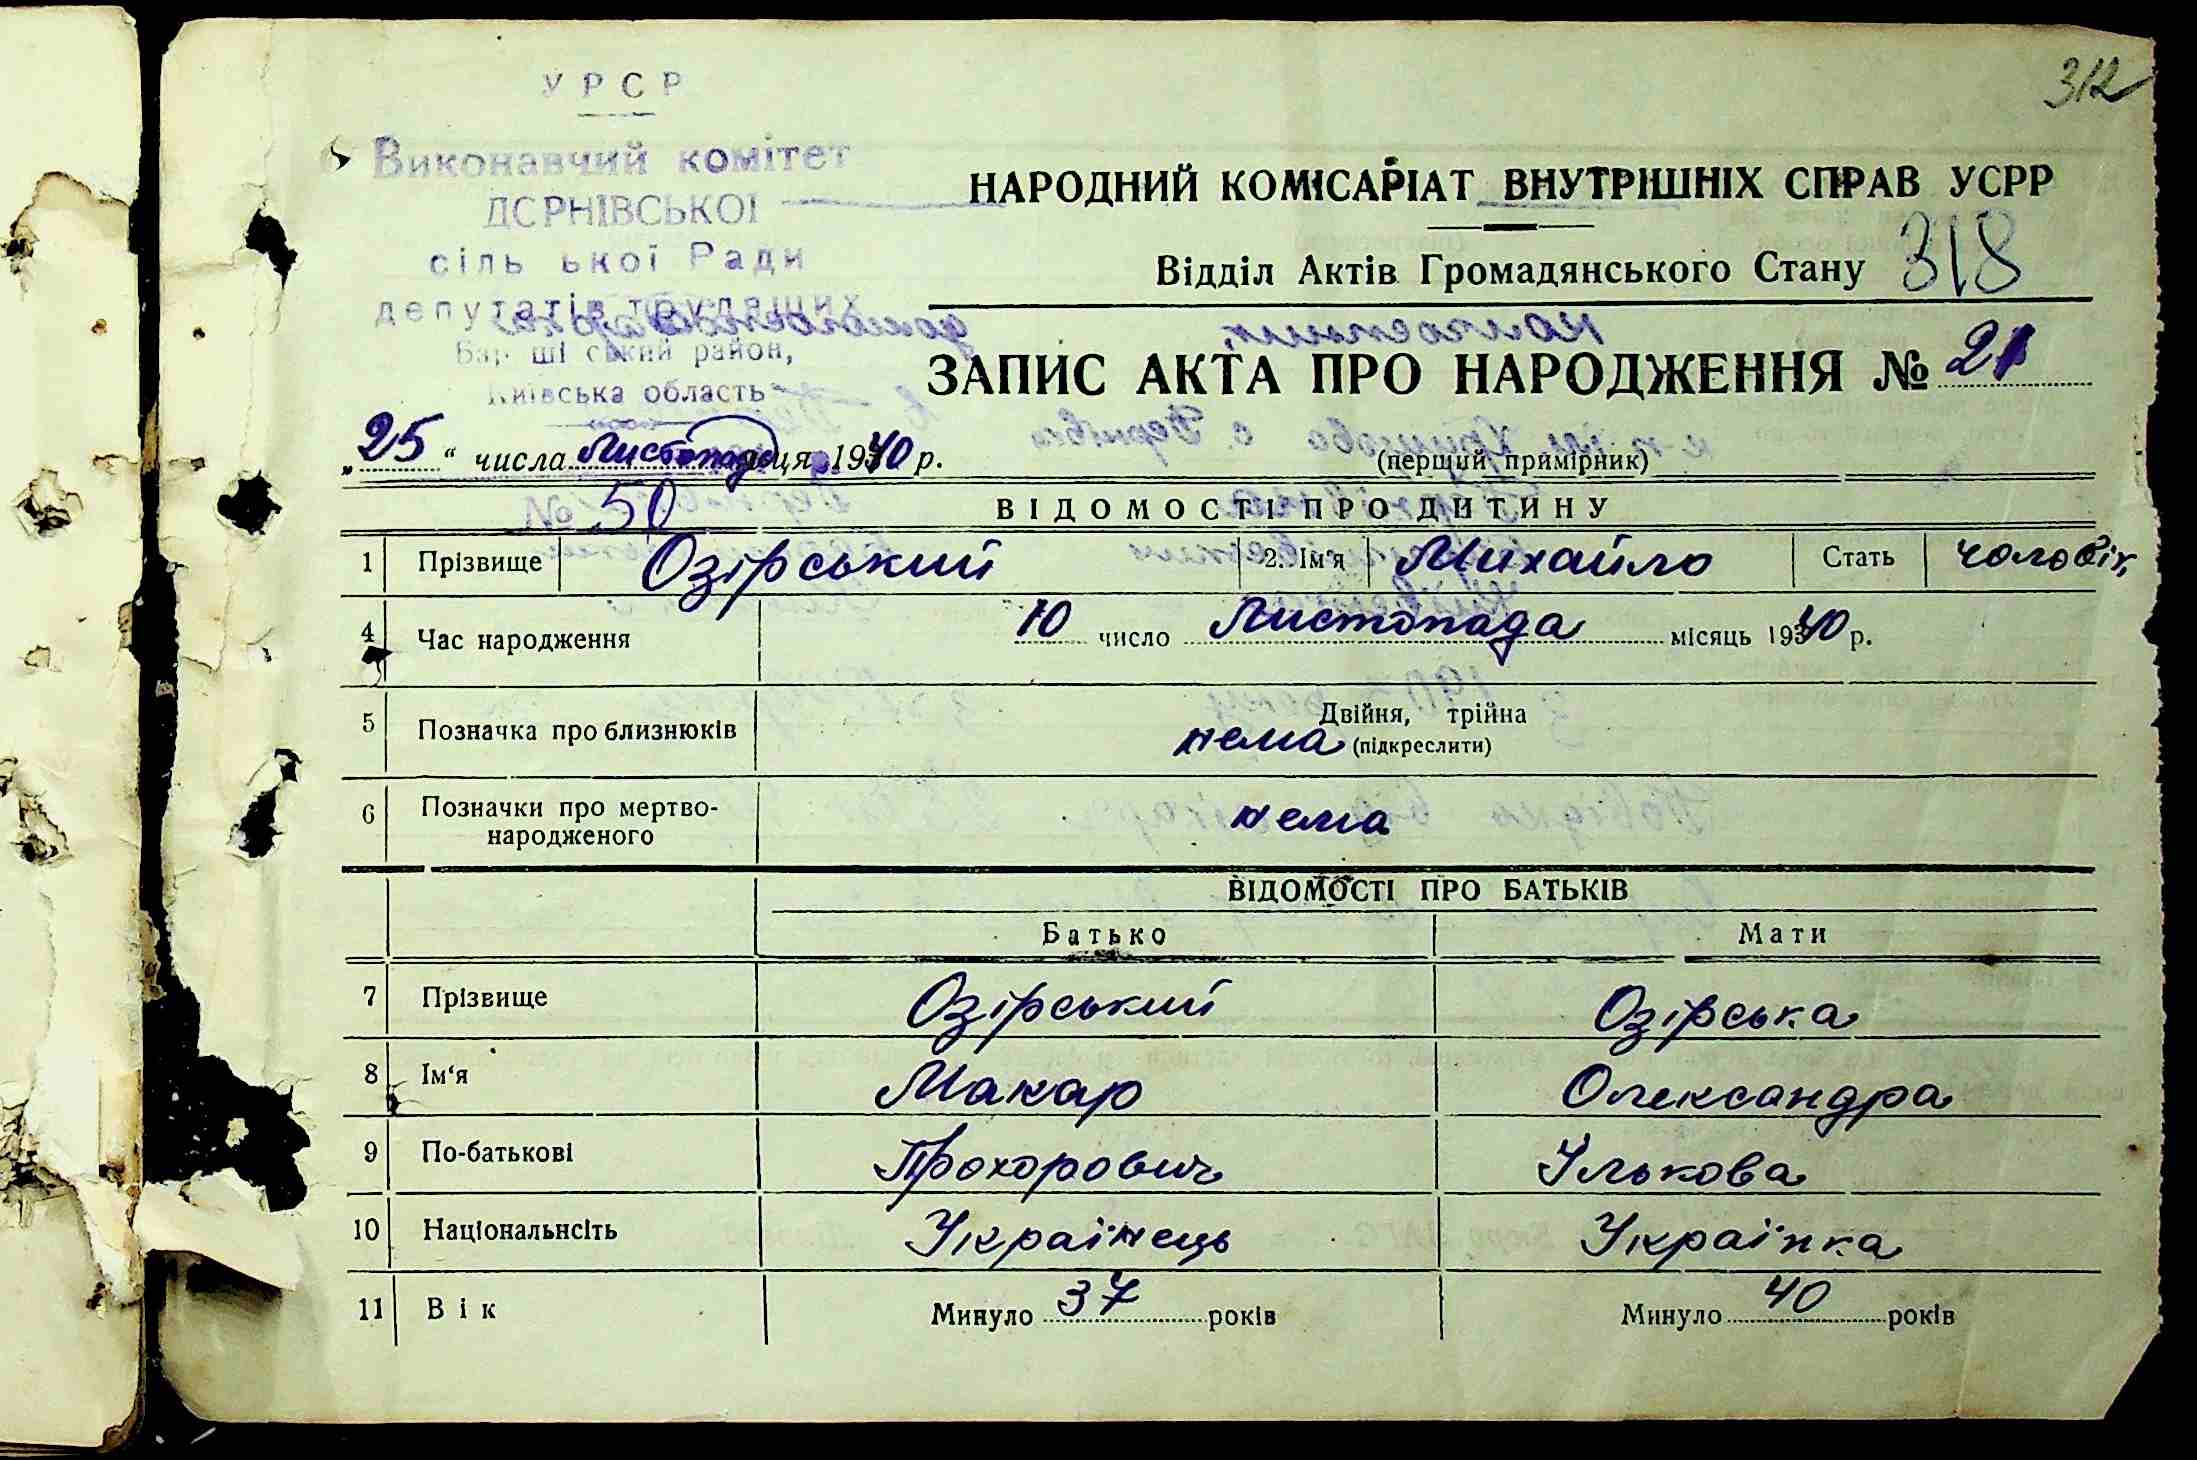 312
УРСР
Виконавчий комітет
ДЄРНІВСЬКОЇ
сіль ької Ради
депутатів трудящих
Бар ші ський район,
Київська область
НАРОДНИЙ КОМІСАРІАТ ВНУТРІШНІХ СПРАВ УСРР
Відділ Актів Громадянського Стану 318
ЗАПИС АКТА ПРО НАРОДЖЕННЯ № 21
„25“ числа Листопада ця 1940 р.
(перший примірник)
№ 50
ВІДОМОСТІ ПРО ДИТИНУ
1 Прізвище Озірський 2. Ім'я Михайло Стать чоловіч.
4 Час народження 10 число Листопада місяць 1940 р.
5 Позначка про близнюків Двійня, трійна
нема (підкреслити)
6 Позначки про мертво-
народженого нема
ВІДОМОСТІ ПРО БАТЬКІВ
Батько Мати
7 Прізвище Озірський Озірська
8 Ім‘я Макар Олександра
9 По-батькові Прохорович Ількова
10 Національнсіть Українець Українка
11 Вік Минуло 37 років Минуло 40 років